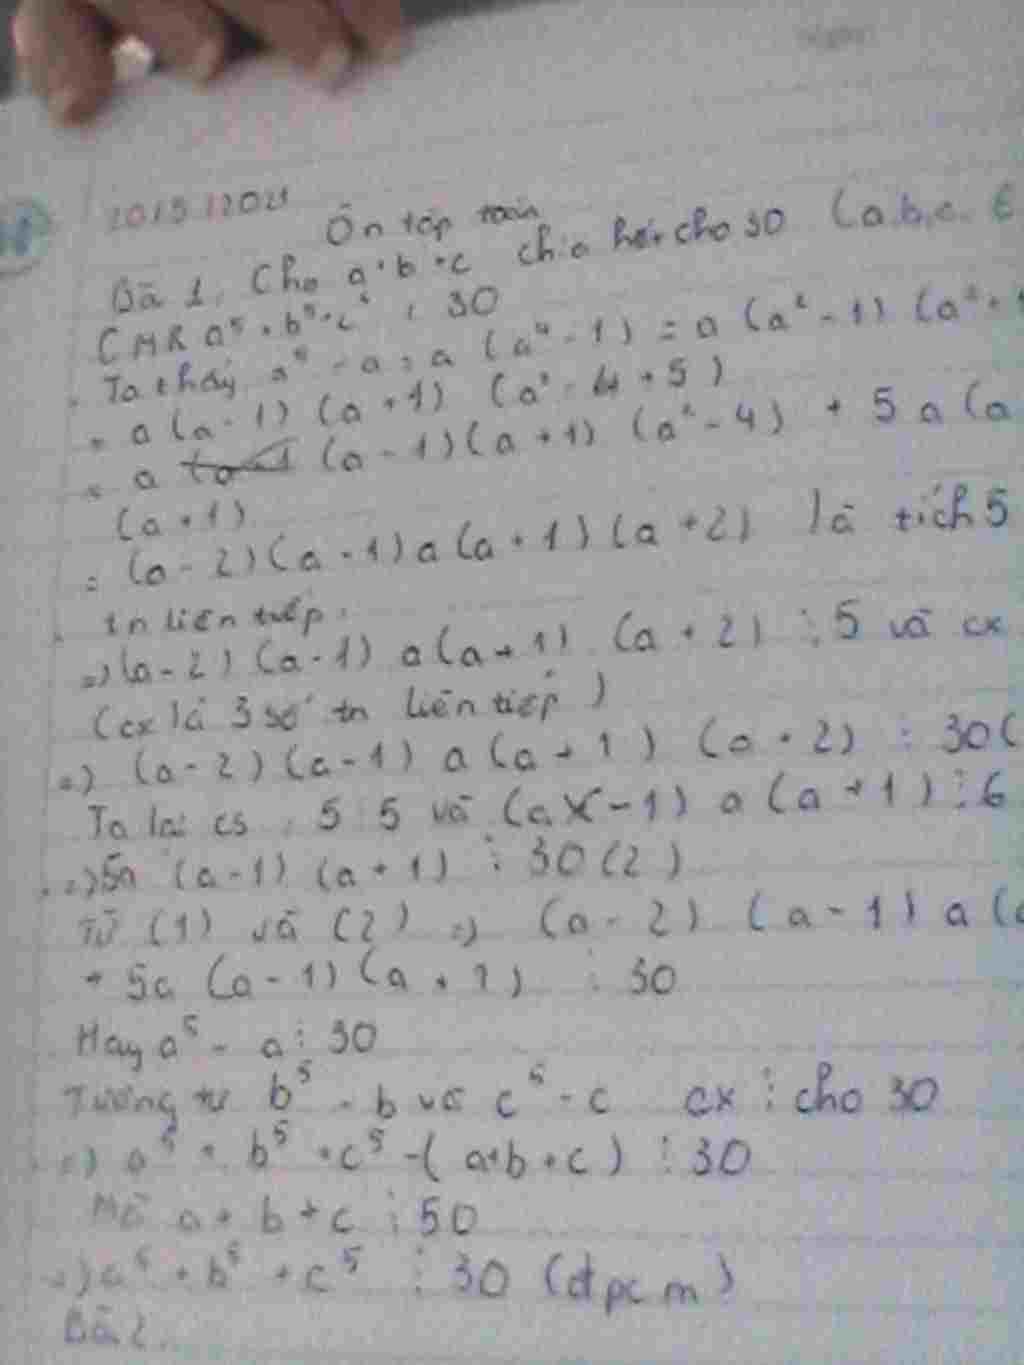 Ôn tập toán
Bài 1. Cho a+b+c chia hết cho 30 (a,b,c €
CMR a⁵+b⁵+c⁵ ⋮ 30
Ta thấy a⁵ - a = a (a⁴ - 1) = a (a² - 1) (a² +
= a (a - 1) (a + 1) (a² - 4 + 5)
= a (a - 1) (a + 1) (a² - 4) + 5 a (a
(a + 1)
= (a - 2) (a - 1) a (a + 1) (a + 2) là tích 5
tn liên tiếp.
=> (a - 2) (a - 1) a (a + 1) (a + 2) ⋮ 5 và cx
(cx là 3 số tn liên tiếp)
=> (a - 2) (a - 1) a (a + 1) (a + 2) ⋮ 30 (
Ta lại có 5 ⋮ 5 và (a - 1) a (a + 1) ⋮ 6
=> 5a (a - 1) (a + 1) ⋮ 30 (2)
Từ (1) và (2) => (a - 2) (a - 1) a (
+ 5a (a - 1) (a + 1) ⋮ 30
Hay a⁵ - a ⋮ 30
Tương tự b⁵ - b và c⁵ - c cx ⋮ cho 30
=> a⁵ + b⁵ + c⁵ - (a+b+c) ⋮ 30
Mà a + b + c ⋮ 30
=> a⁵ + b⁵ + c⁵ ⋮ 30 (đpcm)
Bài 2.